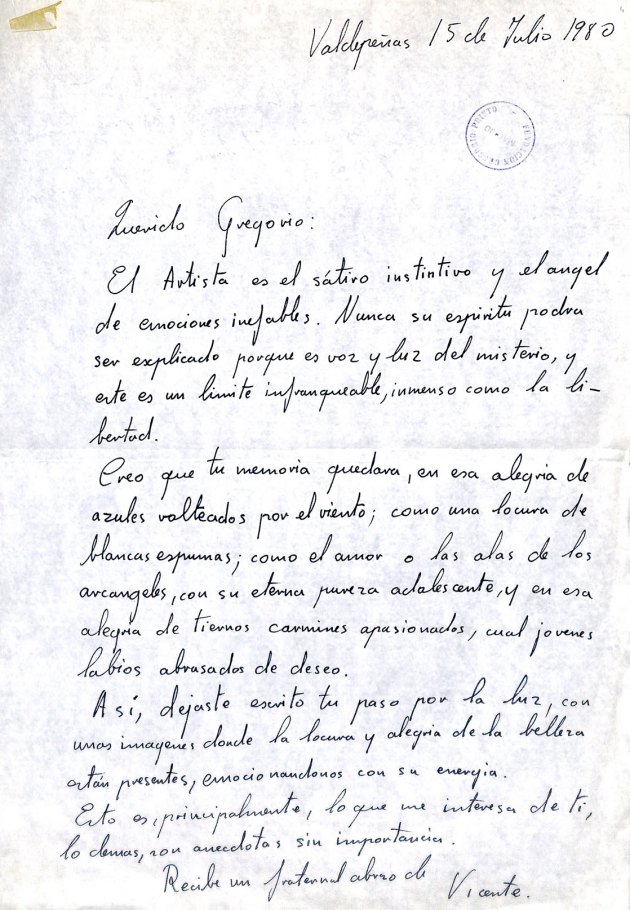 Valdepeñas 15 de Julio 1980
FUNDACION GREGORIO PRIETO
Querido Gregorio:
El Artista es el sátiro instintivo y el angel
de emociones inefables. Nunca su espiritu podra
ser explicado porque es voz y luz del misterio, y
este es un limite infranqueable, inmenso como la li-
bertad.
Creo que tu memoria quedara, en esa alegria de
azules volteados por el viento; como una locura de
blancas espumas; como el amor o las alas de los
arcangeles, con su eterna pureza adolescente, y en esa
alegria de tiernos carmines apasionados, cual jovenes
labios abrasados de deseo.
Así, dejaste escrito tu paso por la luz, con
unas imagenes donde la locura y alegria de la belleza
están presentes, emocionandonos con su energia.
Esto es, principalmente, lo que me interesa de ti,
lo demas, son anecdotas sin importancia.
Recibe un fraternal abrazo de
Vicente.